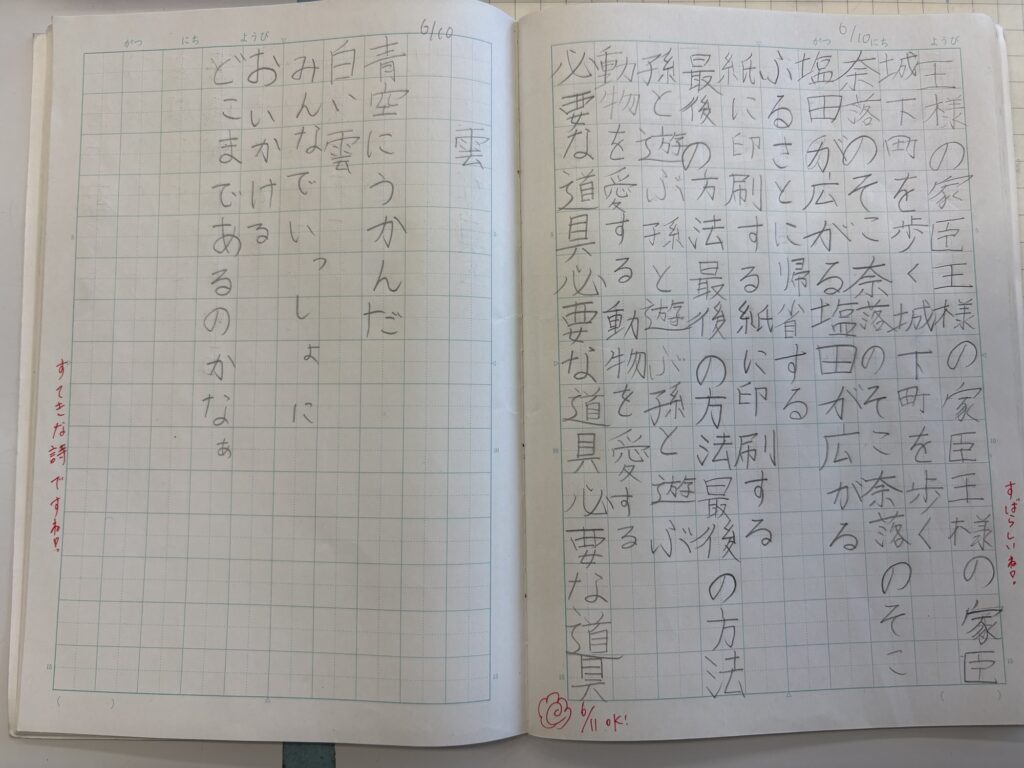 6/10
がつ にち ようび
すばらしいね!
王様の家臣王様の家臣王様の家臣
城下町を歩く城下町を歩く
奈落のそこ奈落のそこ奈落のそこ
塩田が広がる塩田が広がる
ふるさとに帰省する
紙に印刷する紙に印刷する
最後の方法最後の方法最後の方法
孫と遊ぶ孫と遊ぶ孫と遊ぶ
動物を愛する動物を愛する
必要な道具必要な道具必要な道具
6/11 OK!
6/10
がつ にち ようび
雲
青空にうかんだ
白い雲
みんなでいっしょに
おいかける
どこまであるのかなぁ
すてきな詩ですね!